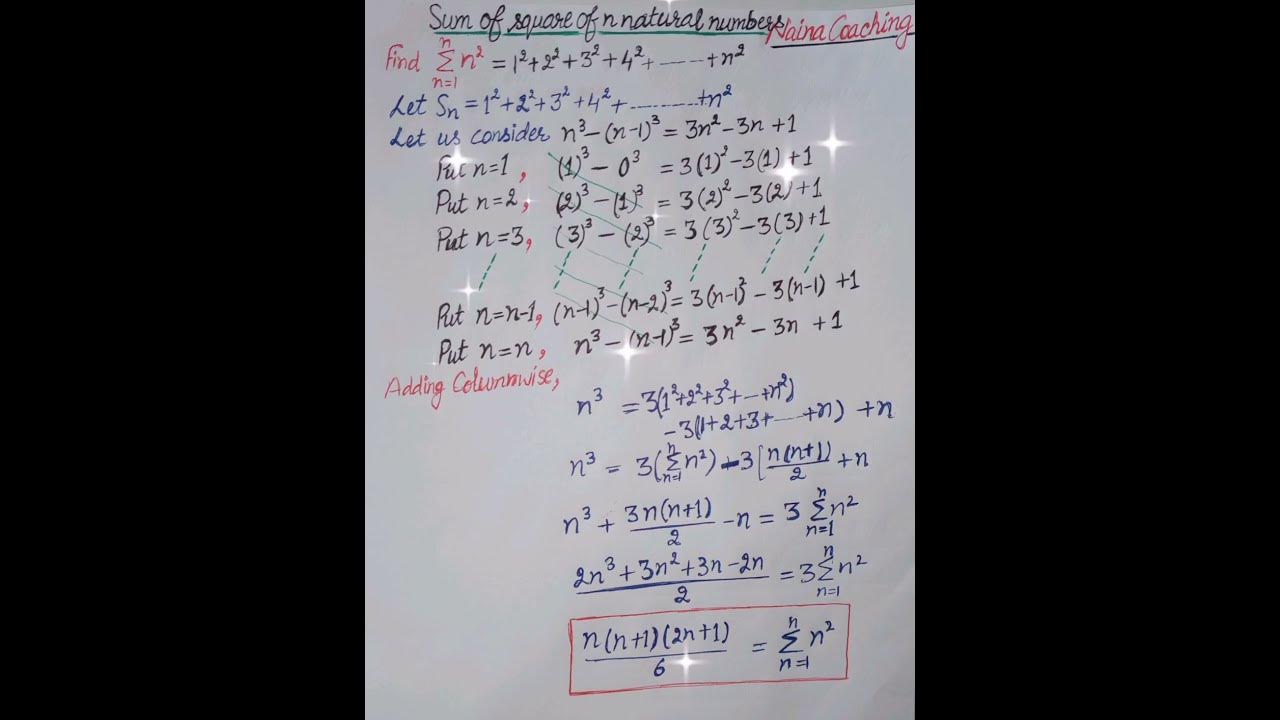 Sum of square of n natural numbers
Naina Coaching
Find ∑_{n=1}^{n} n² = 1²+2²+3²+4²+-----+n²
Let Sₙ = 1²+2²+3²+4²+---------+n²
Let us consider n³-(n-1)³ = 3n²-3n+1
Put n=1, (1)³ - 0³ = 3(1)²-3(1)+1
Put n=2, (2)³-(1)³ = 3(2)²-3(2)+1
Put n=3, (3)³-(2)³ = 3(3)²-3(3)+1
Put n=n-1, (n-1)³-(n-2)³ = 3(n-1)²-3(n-1)+1
Put n=n, n³-(n-1)³ = 3n²-3n+1
Adding Columnwise,
n³ = 3(1²+2²+3²+---+n²)
-3(1+2+3+----+n) +n
n³ = 3(∑_{n=1}^{n} n²)-3[n(n+1)/2 +n
n³ + 3n(n+1)/2 -n = 3 ∑_{n=1}^{n} n²
2n³+3n²+3n-2n/2 = 3∑_{n=1}^{n} n²
n(n+1)(2n+1)/6 = ∑_{n=1}^{n} n²